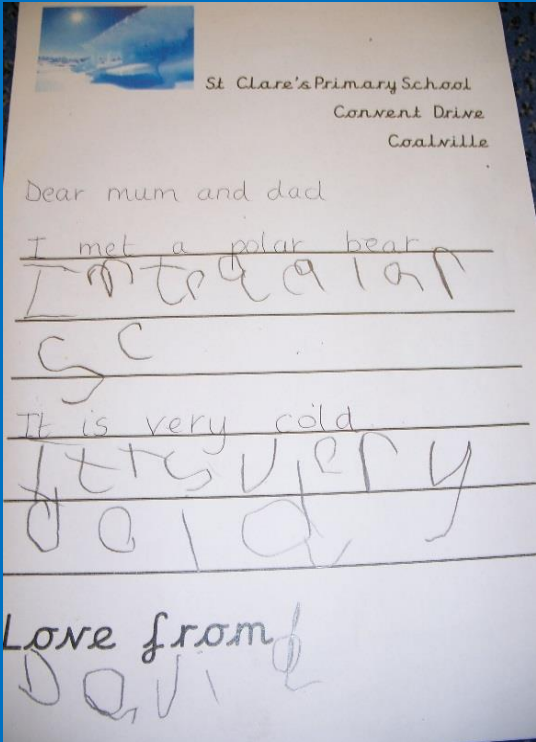 St Clare's Primary School
Convent Drive
Coalville
Dear mum and dad
I met a polar bear
It is very cold
Itisvery
Love from
David